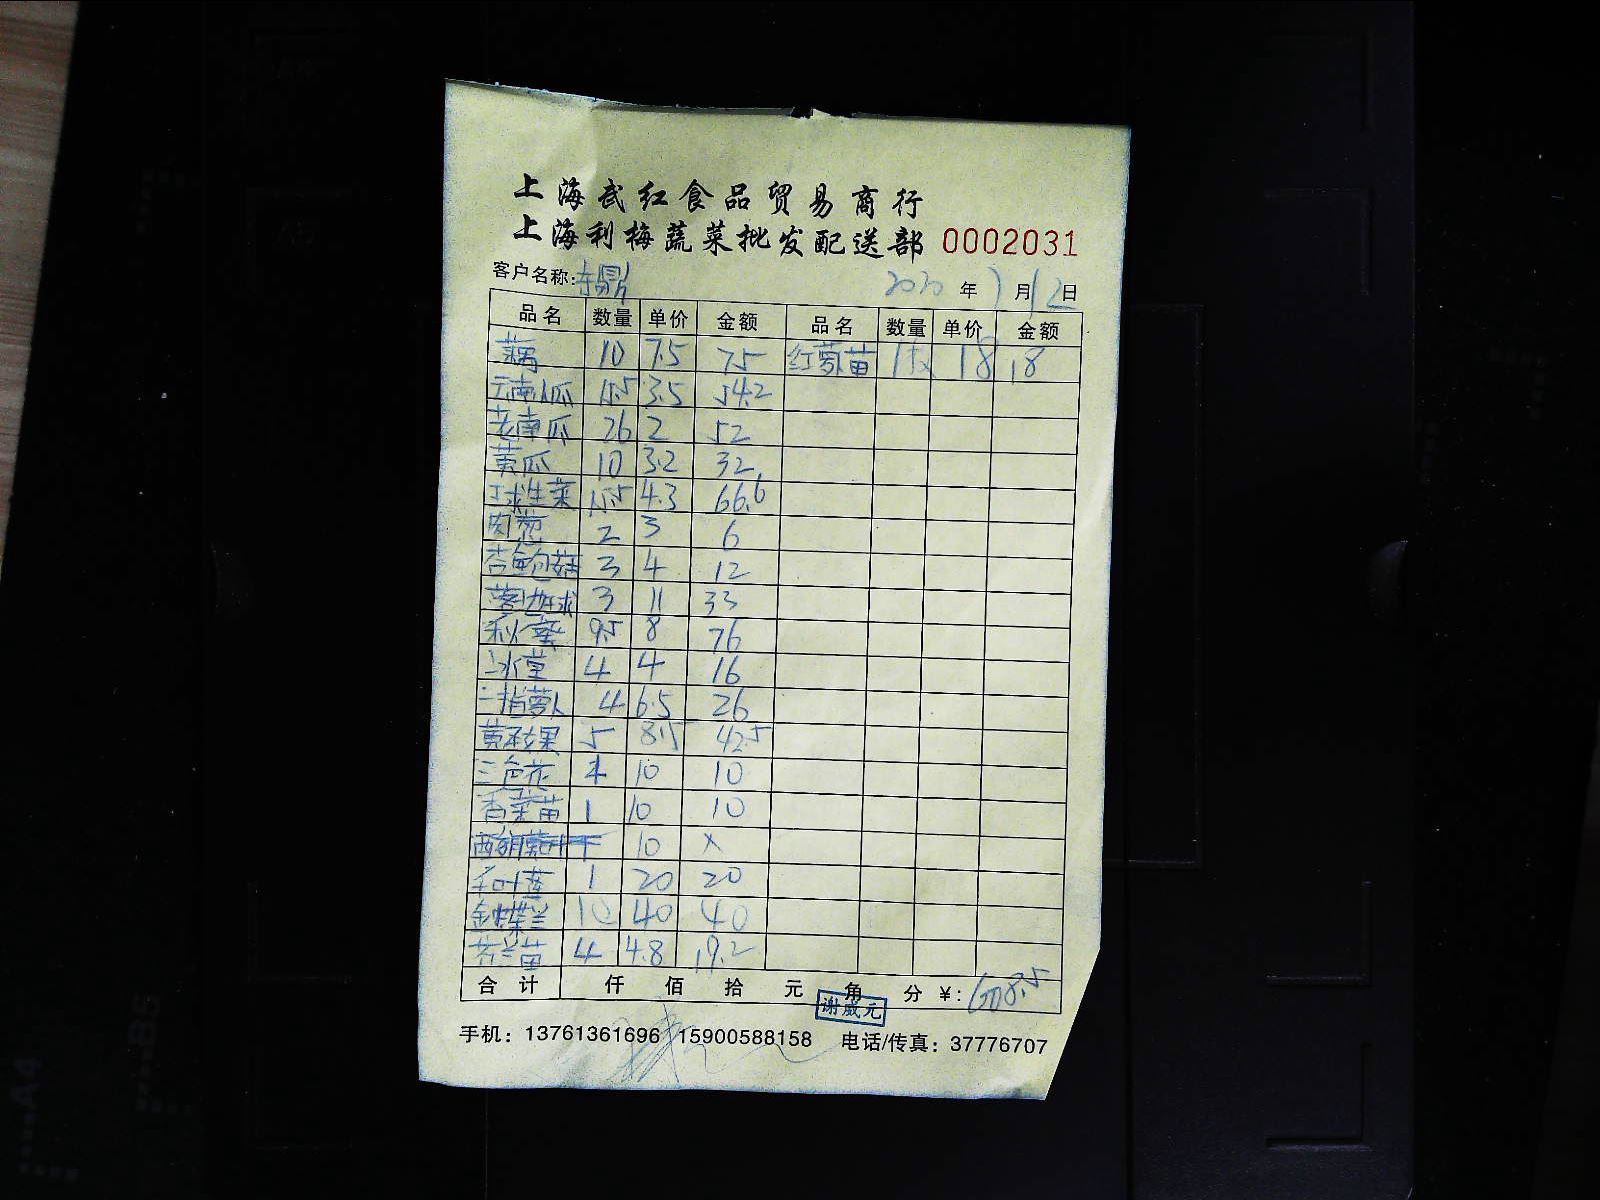 上海武红食品贸易商行
上海利梅蔬菜批发配送部 0002031
客户名称: 2020 年 7 月 12 日
品名 数量 单价 金额 品名 数量 单价 金额
藕 10 7.5 75 红萝苗 1 18 18
云南小瓜 15.5 3.5 54.2
老南瓜 26 2 52
黄瓜 10 3.2 32
球生菜 15.5 4.3 66.6
肉葱 2 3 6
杏鲍菇 3 4 12
3 11 33
秋葵 9.5 8 76
冰草 4 4 16
二指萝卜 4 6.5 26
黄秋果 5 8.5 42.5
三色花 1 10 10
香菜苗 1 10 10
10 ×
千叶莲 1 20 20
金蝶兰 10 40 40
花兰苗 4 4.8 19.2
合计 仟 佰 拾 元 角 分 ¥: 608.5
谢威元
手机: 13761361696 15900588158 电话/传真: 37776707